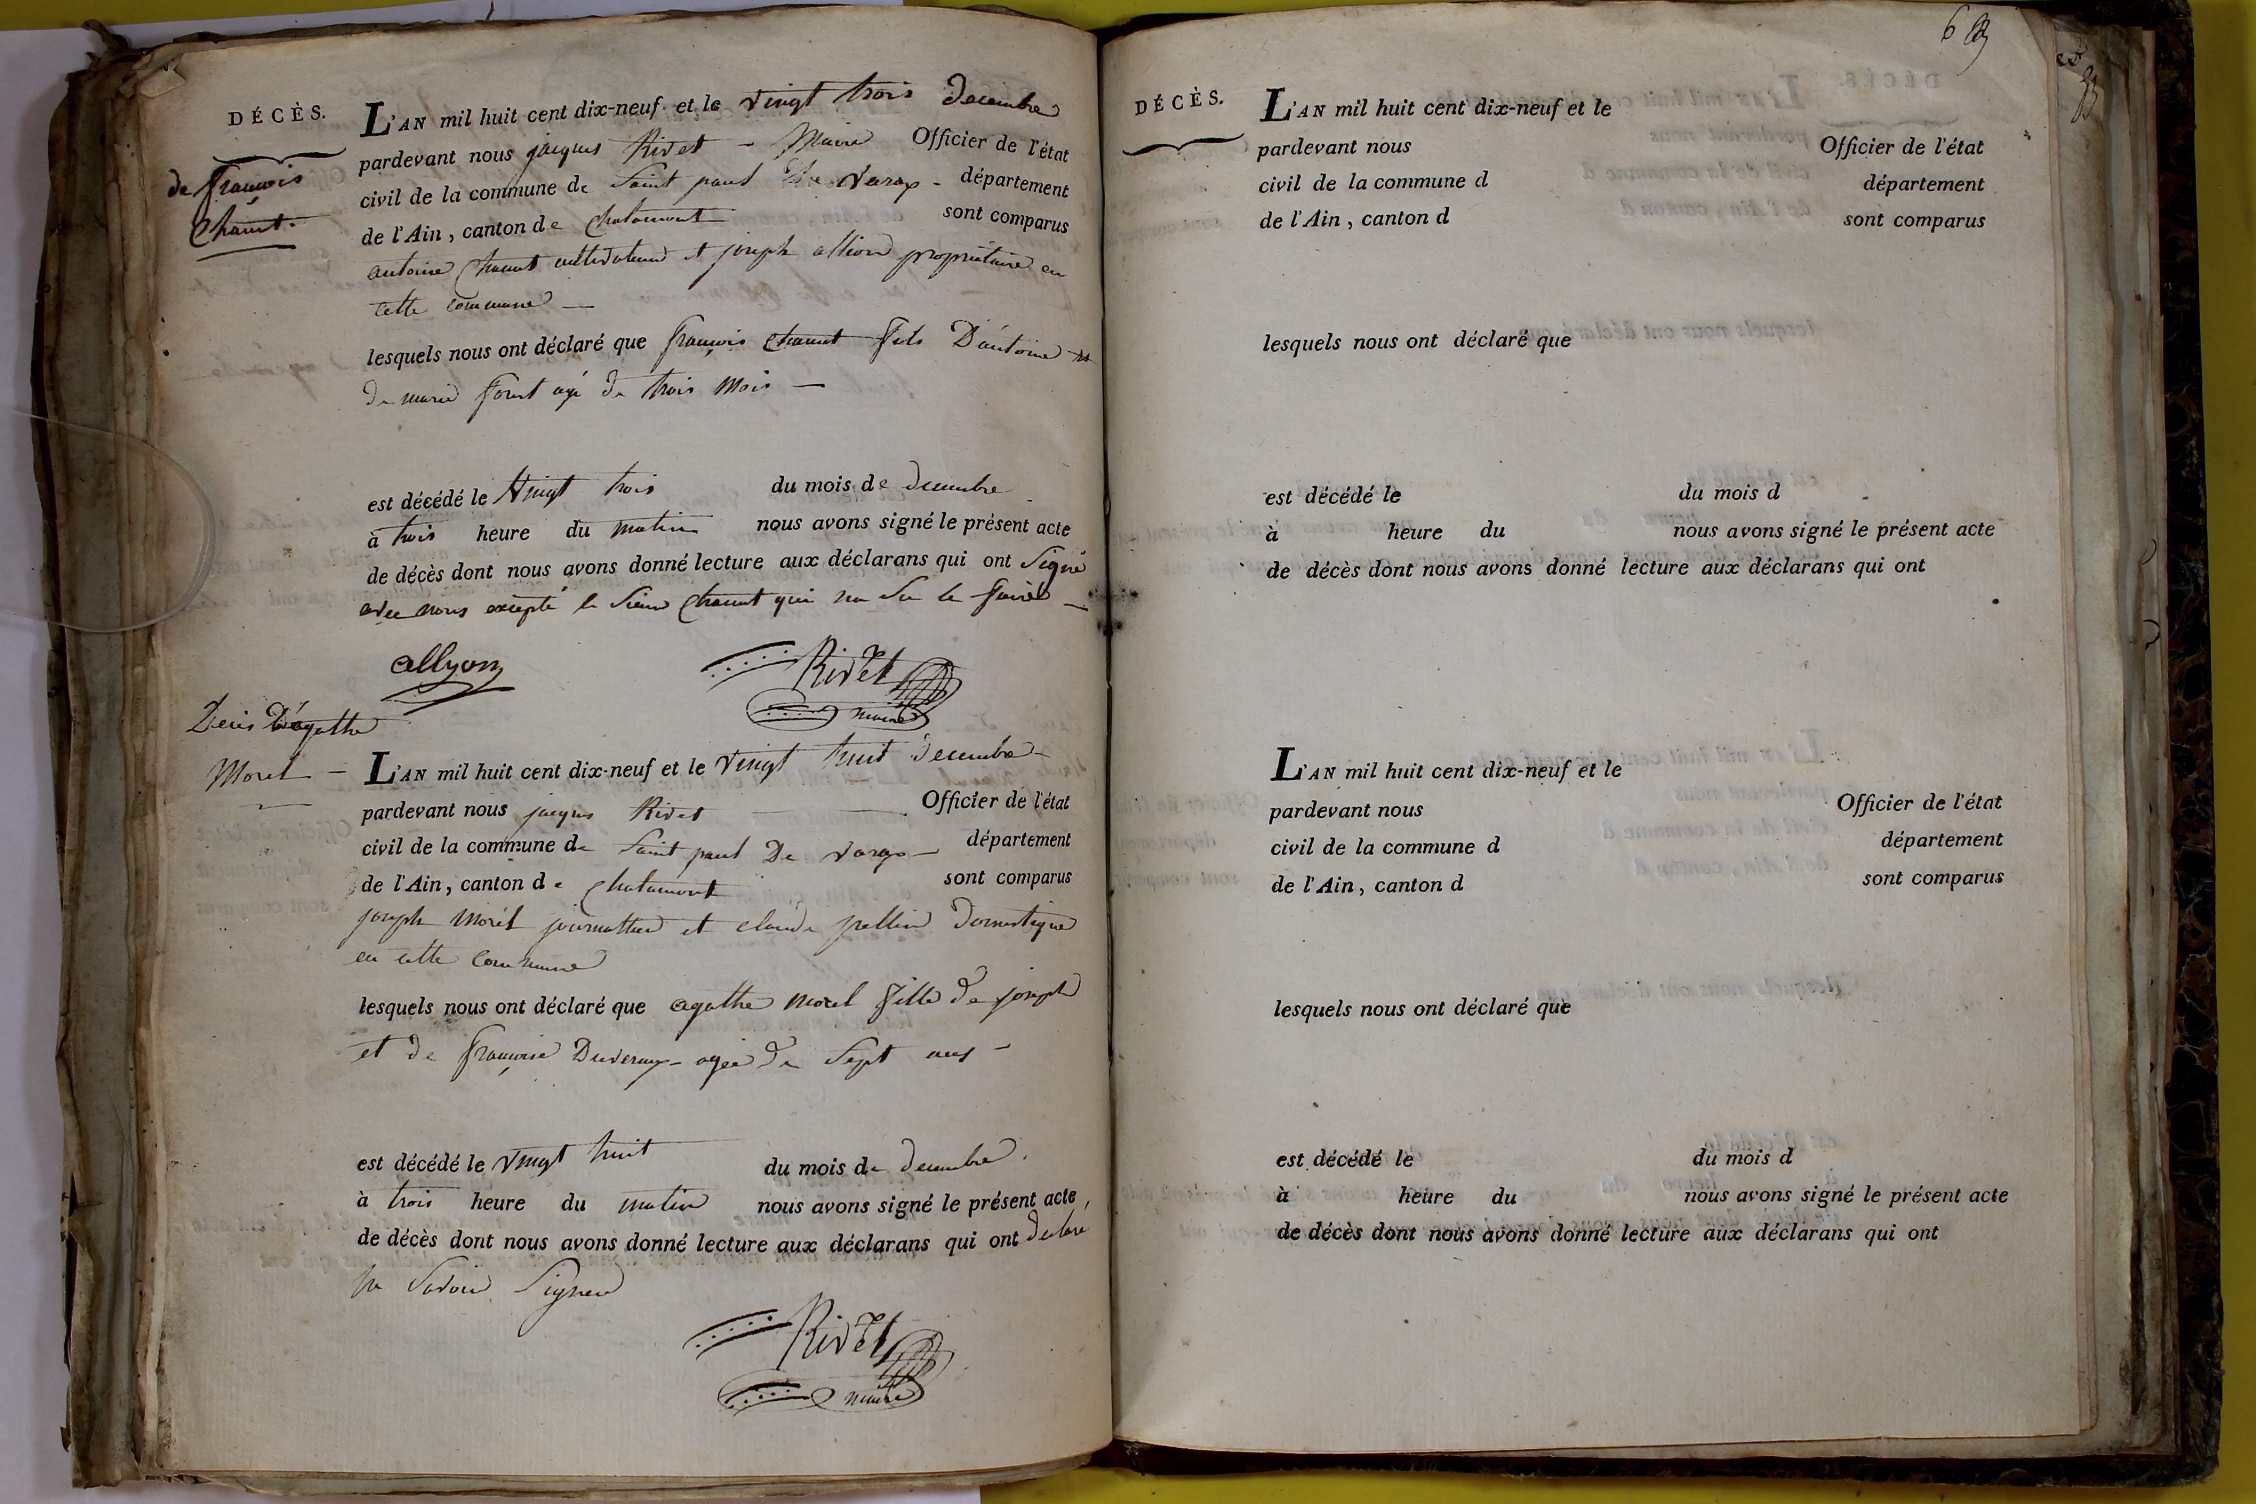 DÉCÈS.
de françois
Chanut.
L'AN mil huit cent dix-neuf et le vingt trois decembre
pardevant nous jacques Rivet - Maire Officier de l'état
civil de la commune de Saint paul de varax - département
de l'Ain, canton de Chalamont sont comparus
antoine Chanut cultivateur et joseph allion propriétaire en
cette commune
lesquels nous ont déclaré que françois Chanut fils D'antoine et
de marie foret agé de trois mois
est décédé le vingt trois du mois de decembre
à trois heure du matin nous avons signé le présent acte
de décès dont nous avons donné lecture aux déclarans qui ont Signé
avec nous excepté le Sieur Chanut qui na Su le faire
allyon Rivet
maire
Décès D'agathe
Morel
L'AN mil huit cent dix-neuf et le vingt huit decembre
pardevant nous jacques Rivet Officier de l'état
civil de la commune de Saint paul De varax département
de l'Ain, canton de Chalamont sont comparus
joseph Morel journallier et claude pellin Domestique
en cette commune
lesquels nous ont déclaré que agathe Morel fille de joseph
et de françoise Duverax agée de Sept ans
est décédé le vingt huit du mois de decembre
à trois heure du matin nous avons signé le présent acte
de décès dont nous avons donné lecture aux déclarans qui ont declaré
ne Savoir Signer
Rivet
maire
DÉCÈS.
L'AN mil huit cent dix-neuf et le
pardevant nous Officier de l'état
civil de la commune d département
de l'Ain, canton d sont comparus
lesquels nous ont déclaré que
est décédé le du mois d
à heure du nous avons signé le présent acte
de décès dont nous avons donné lecture aux déclarans qui ont
L'AN mil huit cent dix-neuf et le
pardevant nous Officier de l'état
civil de la commune d département
de l'Ain, canton d sont comparus
lesquels nous ont déclaré que
est décédé le du mois d
à heure du nous avons signé le présent acte
de décès dont nous avons donné lecture aux déclarans qui ont